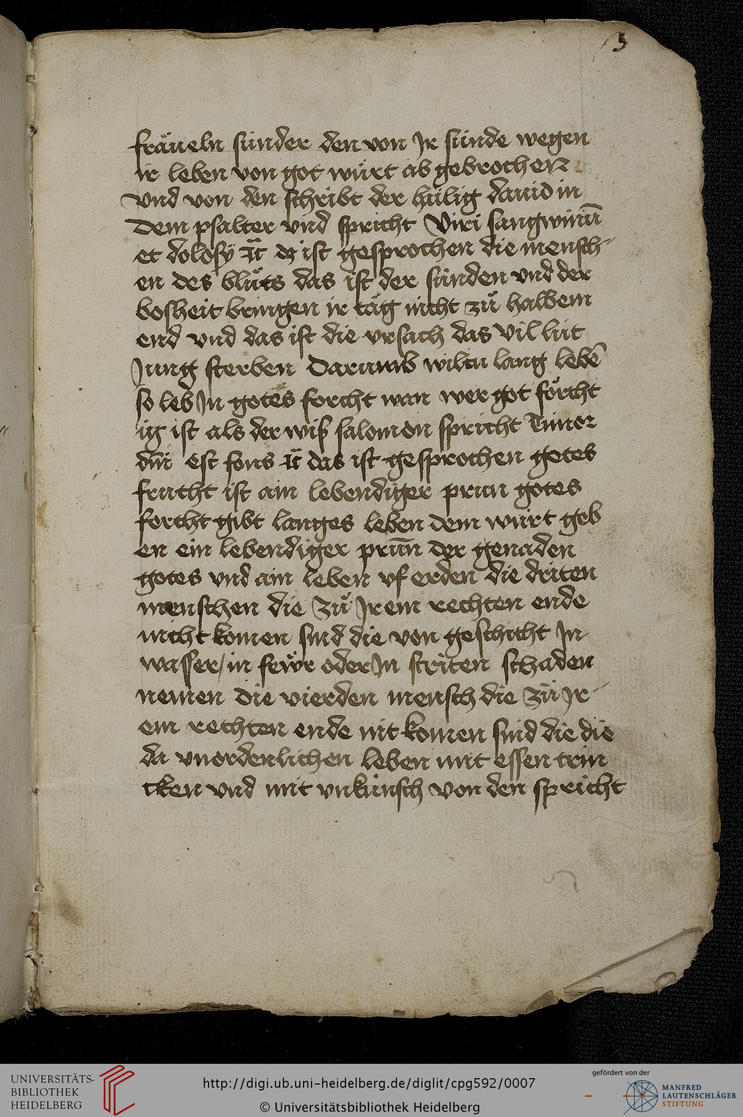 3
fräueln sünder den von Jr sünde wegen
ir leben von got würt ab gebrochen
vnd von den schribt der hailig dauid in
dem psalter vnd spricht Viri sangwinū
et dolosy ꝛc̄ dz ist gesprochen die mensch-
en des blůts das ist der sünden vnd der
bosheit bringen ir tåg nicht zů halbem
end vnd das ist die vrsach das vil lüt
Jung sterben Darumb wiltu lang lebē
so leb Jn gotes forcht wan wer got förcht
ig ist als der wiß salomon spricht Timor
dn̄i est fons ꝛc̄ das ist gesprochen gotes
frucht ist ain lebendiger prun gotes
forcht gibt langes leben dem würt geb
en ein lebendiger prūn der genaden
gotes vnd ain leben vf erden die driten
menschen die zů Jrem rechten ende
nicht komen sind die von geschicht Jn
wasser/in fewr oder Jn striten schaden
nemen die vierden mensch die zů Jr-
em rechten ende nit komen sind die die
da vnordenlichen leben mit essen trin
cken vnd mit vnkünsch von den spricht
UNIVERSITÄTS-
BIBLIOTHEK
HEIDELBERG
http://digi.ub.uni-heidelberg.de/diglit/cpg592/0007
© Universitätsbibliothek Heidelberg
gefördert von der
MANFRED
LAUTENSCHLÄGER
STIFTUNG